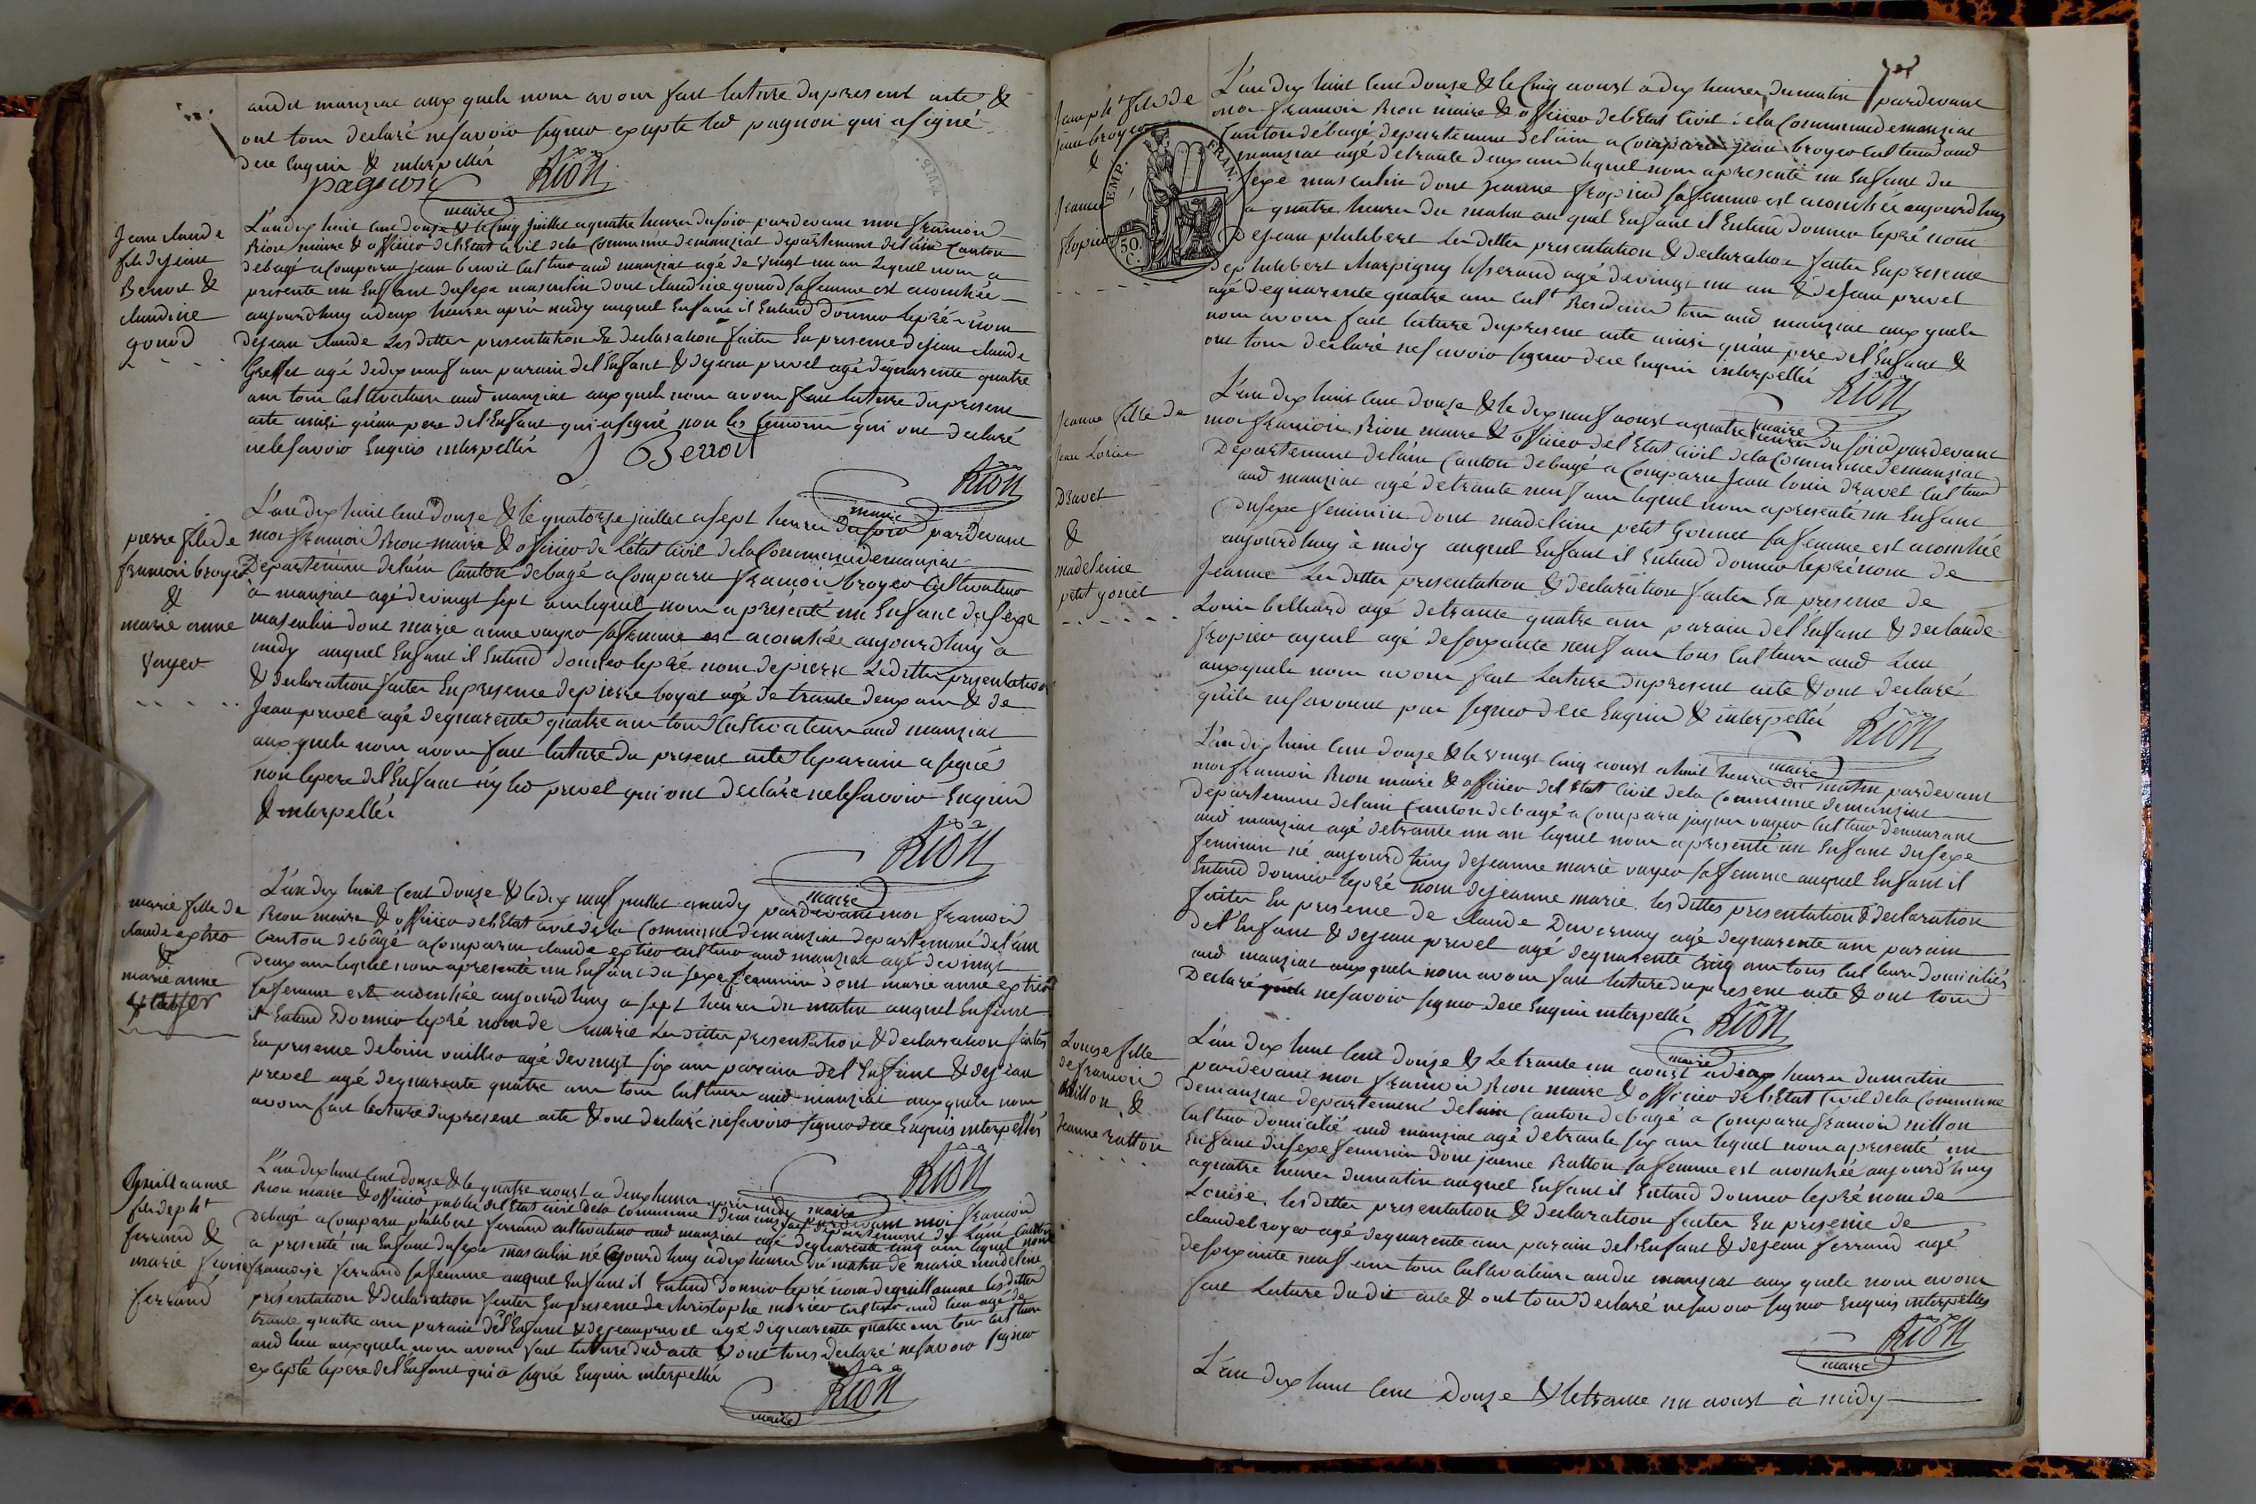 audit manziat aux quels nous avons fait lecture du present acte &
ont tous declaré ne savoir signer excepté led pagnon qui a signé
de ce enquis & interpellés
pagnon Rion
maire
Jean claude
fils de jean
Benoit &
claudine
gonod
L'an dix huit cent douze & le cinq juillet a quatre heures du soir pardevant moi françois
Rion maire & officier de l'Etat civil de la commune de manziat departement de l'ain canton
de bagé a comparu jean benoit cultivr aud manziat agé de vingt un an lequel nous a
presenté un Enfant du sexe masculin dont claudine gonod sa femme est acouchée
aujourd'huy a deux heures après midy auquel Enfant il Entend donner le pré-nom
de jean claude Les dittes presentation & declaration faites En presence de jean claude
Greffet agé de dix neuf ans parain de l'Enfant & de jean prevel agé de quarente quatre
ans tous cultivateurs aud manziat aux quels nous avons fait lecture du present
acte ainsi qu'au pere de l'Enfant qui a signé non les temoins qui ont declaré
ne le savoir Enquis interpellés
J Benoit
Rion
maire
pierre fils de
francois broyer
&
marie anne
vayer
L'an dix huit cent douze & le quatorze juillet a sept heures du soir pardevant
moi francois Rion maire & officier de l'état civil de la Commune de manziat
Departement de l'ain Canton de bagé a comparu francois broyer Cultivateur
a manziat agé de vingt sept ans lequel nous a présenté un Enfant du sexe
masculin dont marie anne vayer sa femme est acouchée aujourd'huy a
midy auquel Enfant il Entend donner le pré nom de pierre Les dittes presentation
& declaration faites En presence de pierre boyat agé de trante deux ans & de
Jean prevel agé de quarente quatre ans tous Cultivateurs aud manziat
aux quels nous avons fait lecture du present acte le parain a signé
non le pere de l'Enfant ny led prevel qui ont declaré ne le savoir Enquis
& interpellés
Rion
maire
marie fille de
claude extier
&
marie anne
L'an dix huit cent douze & le dix neuf juillet a midy pardevant moi francois
Rion maire & officier de l'Etat civil de la commune de manziat departement de l'ain
Canton de bâgé a comparu claude extier cultivr aud manziat agé de vingt
deux ans lequel nous a presenté un Enfant du sexe feminin dont marie anne extier
sa femme est acouchée aujourd'huy a sept heures du matin auquel Enfant
il Entend donner le pré nom de marie Les dittes presentation & declaration faites
En presence de loüis vuillier agé de vingt six ans parain de l'Enfant & de jean
prevel agé de quarente quatre ans tous cultivrs aud manziat aux quels nous
avons fait lecture du present acte & ont declaré ne savoir signer de ce Enquis interpellés
Rion
maire
Guillaume
fils de pht
ferrand &
marie
ferrand
L'an dix huit cent douze & le quatre aoust a deux heures après midy pardevant moi francois
Rion maire & officier public de l'Etat civil de la commune de manziat departement de l'ain canton
de bagé a comparu philibert ferrand cultivateur aud manziat agé de quarente cinq ans lequel nous
a presenté un Enfant du sexe masculin né aujourd'huy a dix heures du matin de marie madeleine
françoise ferrand sa femme auquel Enfant il Entend donner le pré nom de guillaume Les dittes
présentation & declaration faites En presence de christophe morier cultivr aud lieu agé de
trante quatre ans parain de l'Enfant & de jean prevel agé de quarente quatre ans tous cultivrs
aud lieu aux quels nous avons fait lecture dud acte & ont tous declaré ne savoir signer
excepté le pere de l'Enfant qui a signé Enquis interpellés
Rion
maire
Jean pht fils de
jean broyer
&
jeanne
fropier
TIMP. FRAN.
50. C.
L'an dix huit cent douze & le Cinq aoust a dix heures du matin pardevant
moi francois Rion maire & officier de l'Etat Civil de la Commune de manziat
Canton de bagé departement de l'ain a comparu jean broyer cultivr aud
manziat agé de trante deux ans lequel nous a presenté un Enfant du
sexe masculin dont jeanne fropier sa femme est acouchée aujourd'huy
a quatre heures du matin au quel Enfant il Entend donner le pré nom
De jean philibert Les dittes presentation & declaration faites En presence
de philibert Marpigny tisserand agé de vingt un an & de jean prevel
agé de quarente quatre ans cult Residants tous aud manziat aux quels
nous avons fait lecture du present acte ainsi qu'au pere de l'Enfant &
ont tous declaré ne savoir signer de ce Enquis interpellés
Rion
maire
Jeanne fille de
Jean Louis
Dravet
&
madeleine
petit gonet
L'an dix huit cent douze & le dix neuf aoust a quatre heures du soir pardevant
moi francois Rion maire & officier de l'Etat Civil de la Commune de manziat
Departement de l'ain Canton de bagé a Comparu Jean louis Dravet cultivr
aud manziat agé de trante neuf ans lequel nous a presenté un Enfant
du sexe feminin dont madeleine petit Gonnet sa femme est acouchée
aujourd'huy à midy auquel Enfant il Entend donner le prénom de
Jeanne Les dittes presentation & declaration faites En presence de
Louis belliard agé de trante quatre ans parain de l'Enfant & de claude
fropier ayeul agé de soixante neuf ans tous cultivrs aud lieu
auxquels nous avons fait Lecture du present acte & ont declaré
qu'ils ne savoent pas signer de ce Enquis & interpellés
Rion
maire
L'an dix huit cent douze & le vingt cinq aoust a huit heures du matin pardevant
moi francois Rion maire & officier de l'Etat Civil de la Commune de manziat
Département de l'ain Canton de bagé a comparu jaques vayer cultivr demeurant
aud manziat agé de trante un an lequel nous a presenté un Enfant du sexe
feminin né aujourd'huy de jeanne marie vayer sa femme auquel Enfant il
Entend donner le pré nom de jeanne marie. les dittes presentation & declaration
faites En presence de claude Duvernay agé de quarente ans parain
de l'Enfant & de jean prevel agé de quarente cinq ans tous cultrs domiciliés
aud manziat aux quels nous avons fait lecture du present acte & ont tous
Declaré ne savoir signer de ce Enquis interpellés
Rion
maire
Louise fille
de francois
nillon &
Jeanne ratton
L'an dix huit cent douze & Le trante un aoust a dix heures du matin
pardevant moi francois Rion maire & officier de l'Etat Civil de la Commune
de manziat departement de l'ain Canton de bagé a comparu francois nillon
cultivr domicilié aud manziat agé de trante six ans lequel nous a presenté un
Enfant du sexe feminin dont jeanne Ratton sa femme est acouchée aujourd'huy
a quatre heures du matin auquel Enfant il Entend donner le pré nom de
Louise. Les dittes presentation & declaration faites En presence de
claude broyer agé de quarente ans parain de l'Enfant & de jean ferrand agé
de soixante neuf ans tous Cultivateurs audit manziat aux quels nous avons
fait Lecture du dit acte & ont tous declaré ne savoir signer Enquis interpellés
Rion
maire
L'an dix huit cent Douze & le trante un aoust à midy